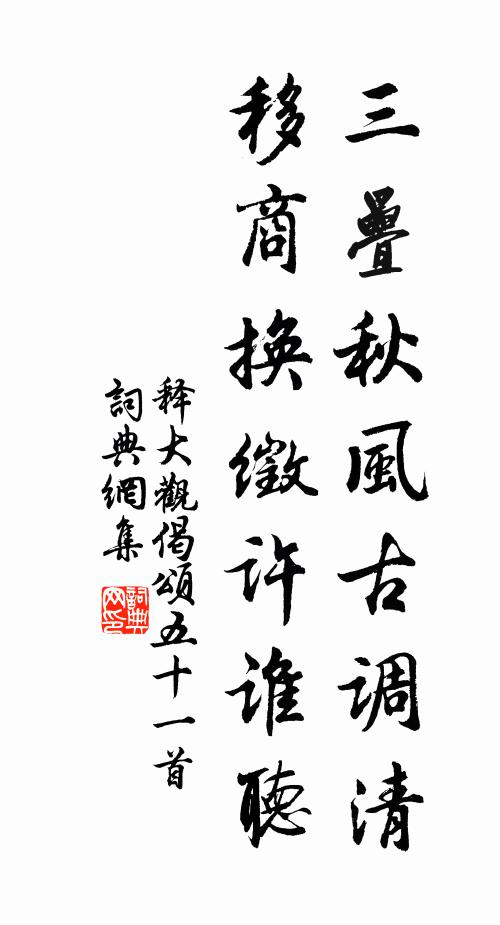 三疊秋風古调清
移商換徵许誰聽
释大觀偈頌五十一首
詞典網集
詞典网印